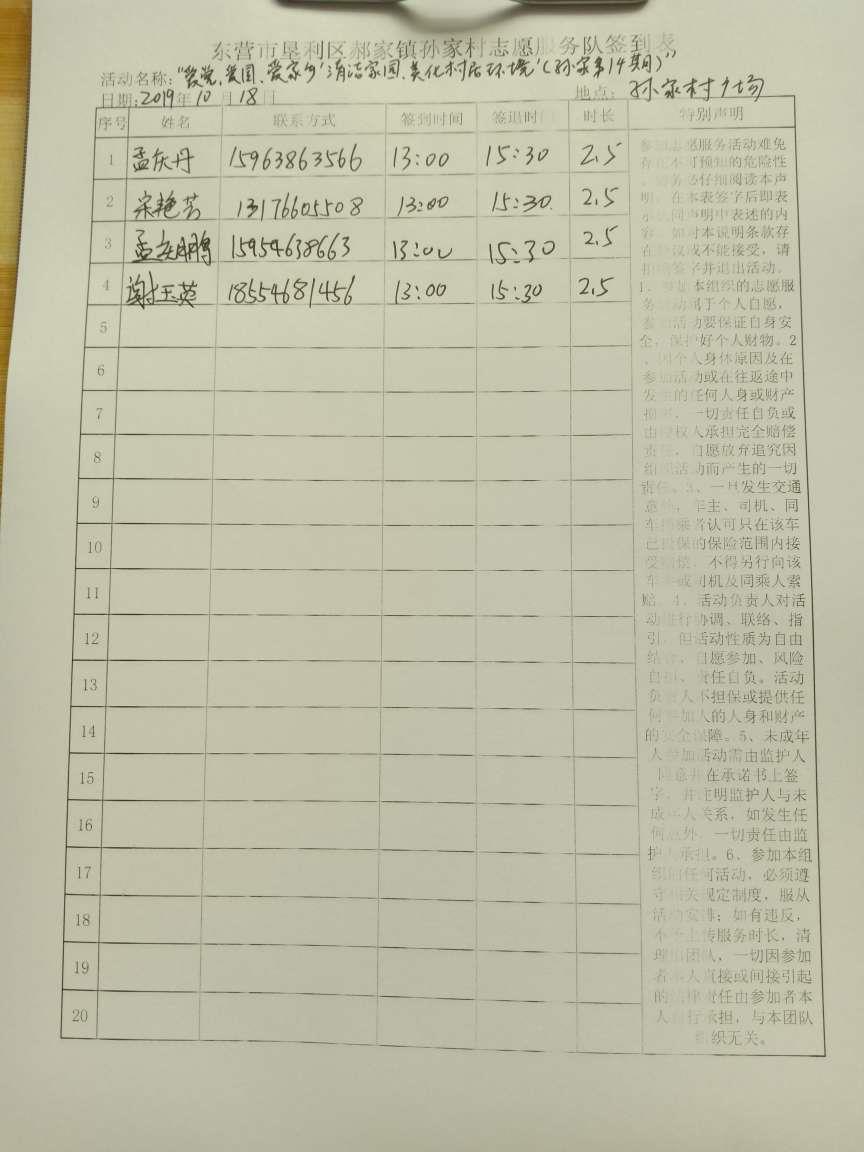 东营市垦利区郝家镇孙家村志愿服务队签到表
活动名称："爱党、爱国、爱家乡'清洁家园、美化村居环境'(孙家第14期)"
日期:2019年10月18日 地点：孙家村广场
序号 姓名 联系方式 签到时间 签退时间 时长 特别声明
1 孟庆丹 15963863566 13:00 15:30 2.5
2 宋艳芳 13176605508 13:00 15:30 2.5
3 孟庆鹏 15954638663 13:00 15:30 2.5
4 谢玉英 18554681456 13:00 15:30 2.5
5
6
7
8
9
10
11
12
13
14
15
16
17
18
19
20
参加志愿服务活动难免
存在不可预知的危险性
，请务必仔细阅读本声
明，在本表签字后即表
示认同声明中表述的内
容，如对本说明条款存
在异议或不能接受，请
拒绝签字并退出活动。
1、参加本组织的志愿服
务活动属于个人自愿，
参加活动要保证自身安
全，保护好个人财物。2
、因个人身体原因及在
参加活动或在往返途中
发生的任何人身或财产
损害，一切责任自负或
由侵权人承担完全赔偿
责任，自愿放弃追究因
组织活动而产生的一切
责任。3、一旦发生交通
意外，车主、司机、同
车搭乘者认可只在该车
已投保的保险范围内接
受赔偿，不得另行向该
车主或司机及同乘人索
赔。4、活动负责人对活
动进行协调、联络、指
引，但活动性质为自由
结合，自愿参加、风险
自担、责任自负。活动
负责人不担保或提供任
何参加人的人身和财产
的安全保障。5、未成年
人参加活动需由监护人
同意并在承诺书上签
字，并注明监护人与未
成年人关系，如发生任
何意外，一切责任由监
护人承担。6、参加本组
织的任何活动，必须遵
守相关规定制度，服从
活动安排；如有违反，
不予上传服务时长，清
理出团队，一切因参加
者本人直接或间接引起
的法律责任由参加者本
人自行承担，与本团队
组织无关。